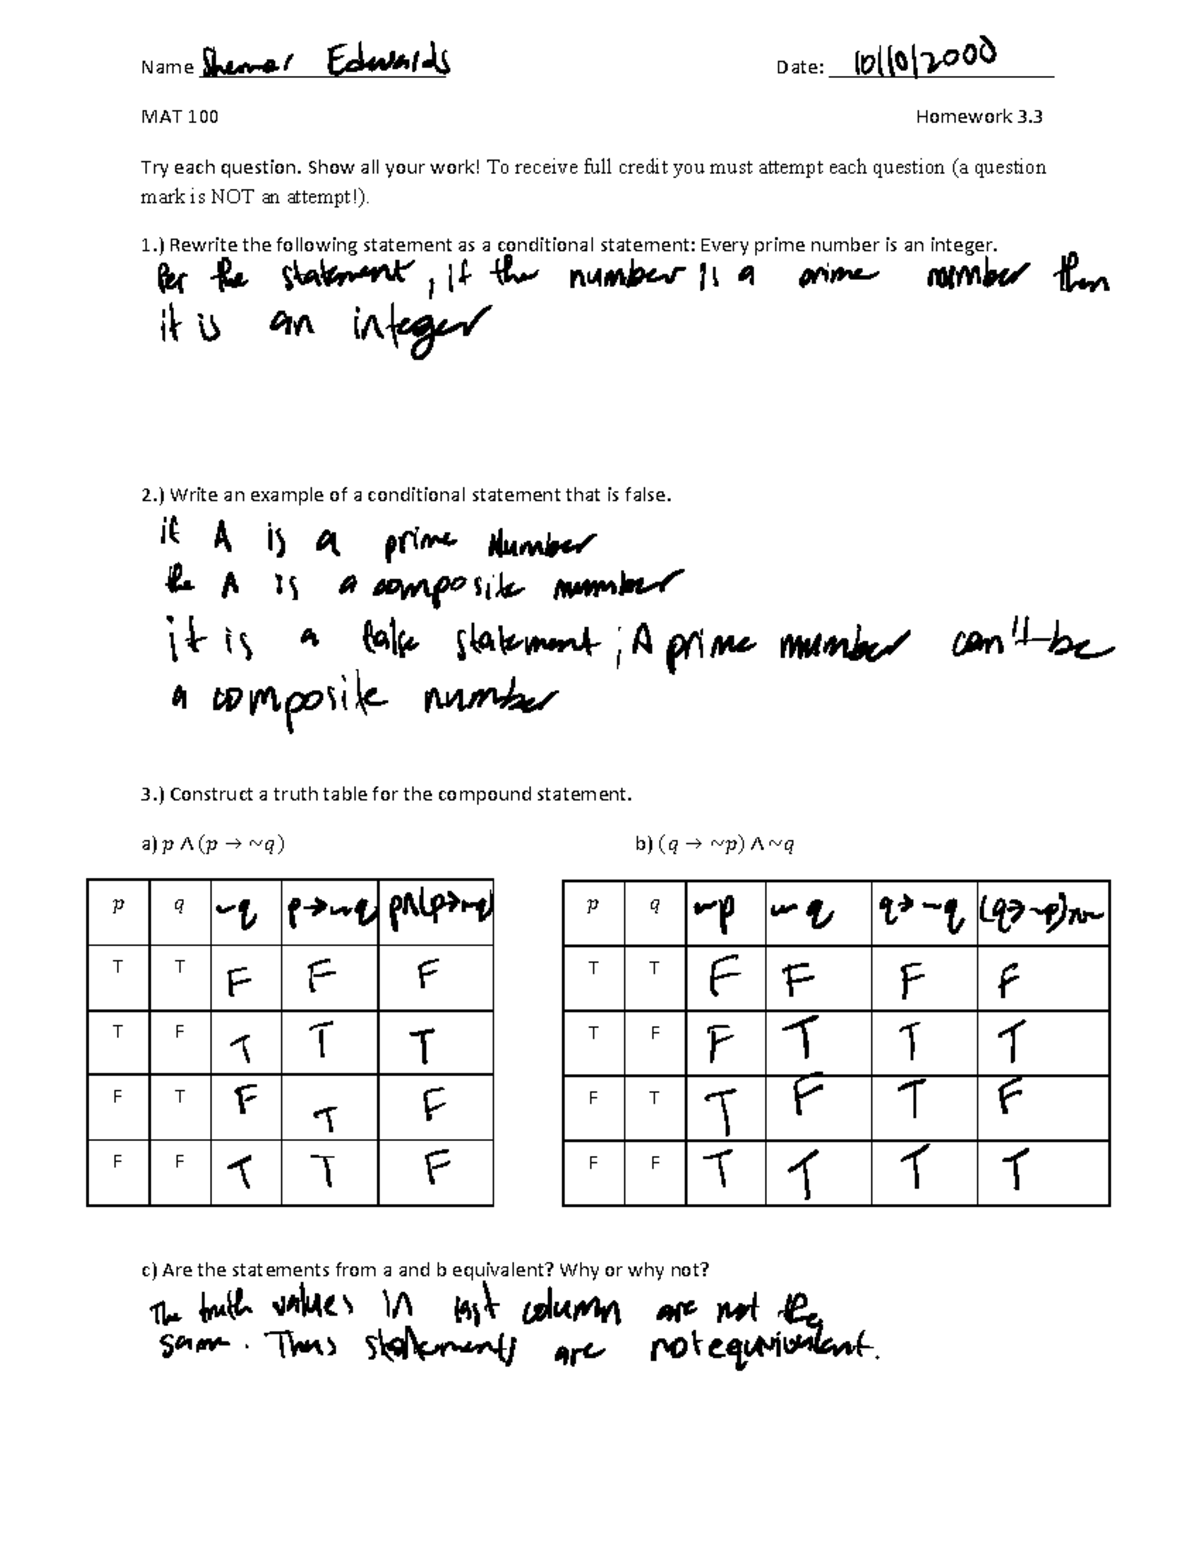 Name Shemar Edwards Date: 10/10/2000
MAT 100 Homework 3.3
Try each question. Show all your work! To receive full credit you must attempt each question (a question
mark is NOT an attempt!).
1.) Rewrite the following statement as a conditional statement: Every prime number is an integer.
Per the statement, if the number is a prime number then
it is an integer
2.) Write an example of a conditional statement that is false.
if A is a prime Number
the A is a composite number
it is a false statement; A prime number can't be
a composite number
3.) Construct a truth table for the compound statement.
a) p ∧ (p → ~q) b) (q → ~p) ∧ ~q
p q ~q p→~q p∧(p→~q) p q ~p ~q q→~q (q→~p)∧~
T T F F F T T F F F F
T F T T T T F F T T T
F T F T F F T T F T F
F F T T F F F T T T T
c) Are the statements from a and b equivalent? Why or why not?
The truth values in last column are not the
same. Thus statements are not equivalent.